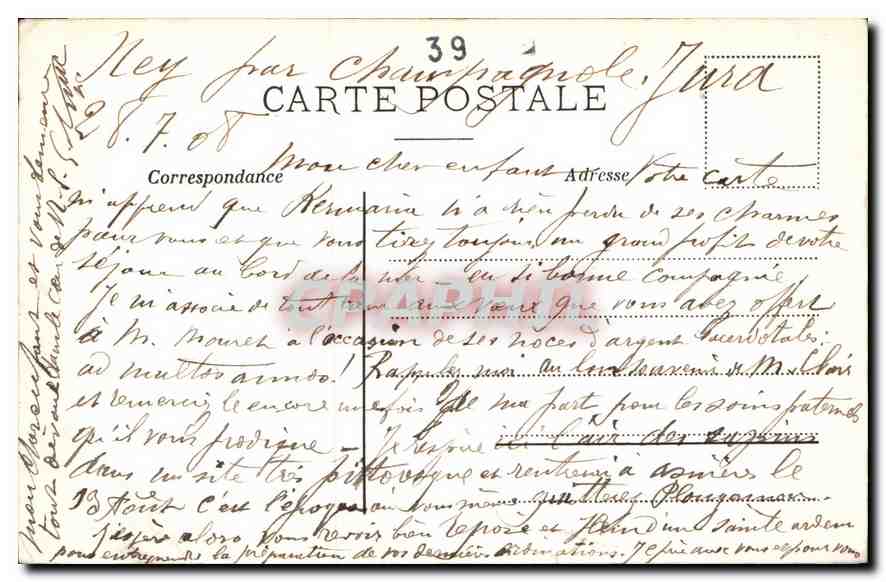 39
Ney par Champagnole. Jura
CARTE POSTALE
28.7.08
Mon cher enfant
Correspondance
Adresse
Votre carte
m'apprend que Kermaria n'a rien perdu de ses charmes
pour vous et que vous tirez toujours un grand profit de votre
séjour au bord de la mer - en si bonne compagnie
Je m'associe de tout aux vœux que vous avez offert
à M. Mouret à l'occasion de ses noces d'argent Sacerdotales:
ad multos annos! Rappelez moi au bon souvenir de M.
et remerciez le encore une fois de ma part pour les soins paternels
qu'il vous prodigue - J'espère ici l'air des sapins
dans un site très pittoresque et rentrerai à Asnières le
13 Août c'est l'époque où vous même
j'espère alors vous revoir bien reposé et plein d'une sainte ardeur
pour entreprendre la préparation de vos dernières ordinations. Je prie avec vous et pour vous
mon cher enfant et vous demeure
tout dévoué dans le cœur de N. S.
CPAPHIL